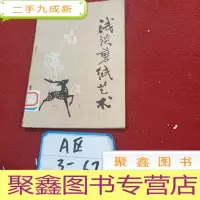 正版
二手九成新
浅谈剪纸艺术
A区
3-67
聚鑫图书专营店